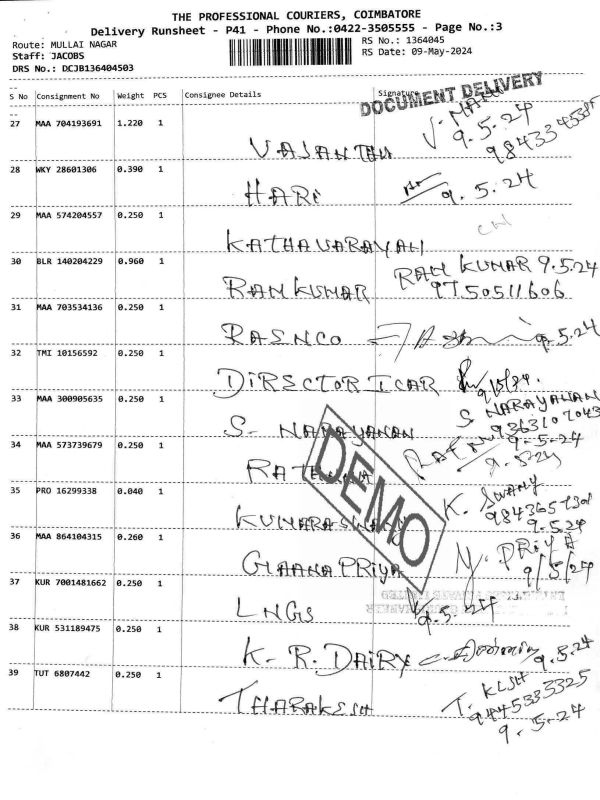 THE PROFESSIONAL COURIERS, COIMBATORE
Delivery Runsheet - P41 - Phone No.:0422-3505555 - Page No.:3
Route: MULLAI NAGAR
RS No.: 1364045
Staff: JACOBS
RS Date: 09-May-2024
DRS No.: DCJB136404503
DOCUMENT DELIVERY
S No Consignment No Weight PCS Consignee Details Signature
27 MAA 704193691 1.220 1
9.5.24
28 WKY 28601306 0.390 1
HARI 9.5.24
29 MAA 574204557 0.250 1
KATHAVARAYAN
30 BLR 140204229 0.960 1
RAM KUMAR RAM KUMAR 9.5.24
9750511606
31 MAA 703534136 0.250 1
RASNCO 9.5.24
32 TMI 10156592 0.250 1
DIRECTOR ICAR
33 MAA 300905635 0.250 1
S. NARAYANAN S NARAYANAN
9363107043
34 MAA 573739679 0.250 1
9-5-24
35 PRO 16299338 0.040 1
KUMARASWAMY K. SWAMY
9.5.24
36 MAA 864104315 0.260 1
GNANA PRIYA PRIYA
9/5/24
37 KUR 7001481662 0.250 1
LNGS 9.5.24
38 KUR 531189475 0.250 1
K. R. DAIRY 9.5.24
39 TUT 6807442 0.250 1
THARAKESH
9445333325
9.5.24
DEMO